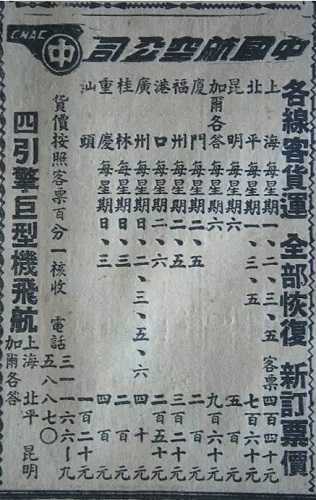 CNAC
中
中國航空公司
各線客貨運 全部恢復 新訂票價
上海 每星期一、二、四、五 客票四百四十元
北平 每星期一、三、五 七百六十元
昆明 每星期六 五百元
加爾各答 每星期六 九百六十元
廈門 每星期二、五
福州 每星期二、五 二百五十元
口 每星期二、六 二百元
廣州 每星期一、二、三、五、六 四十元
桂林 每星期日、三 二百元
重慶 每星期日、三 四百元
汕頭 一百二十元
貨價按照客票百分一核收 電話 三一一六六—九
五八八七〇
四引擎巨型機飛航
上海 北平 昆明
加爾各答